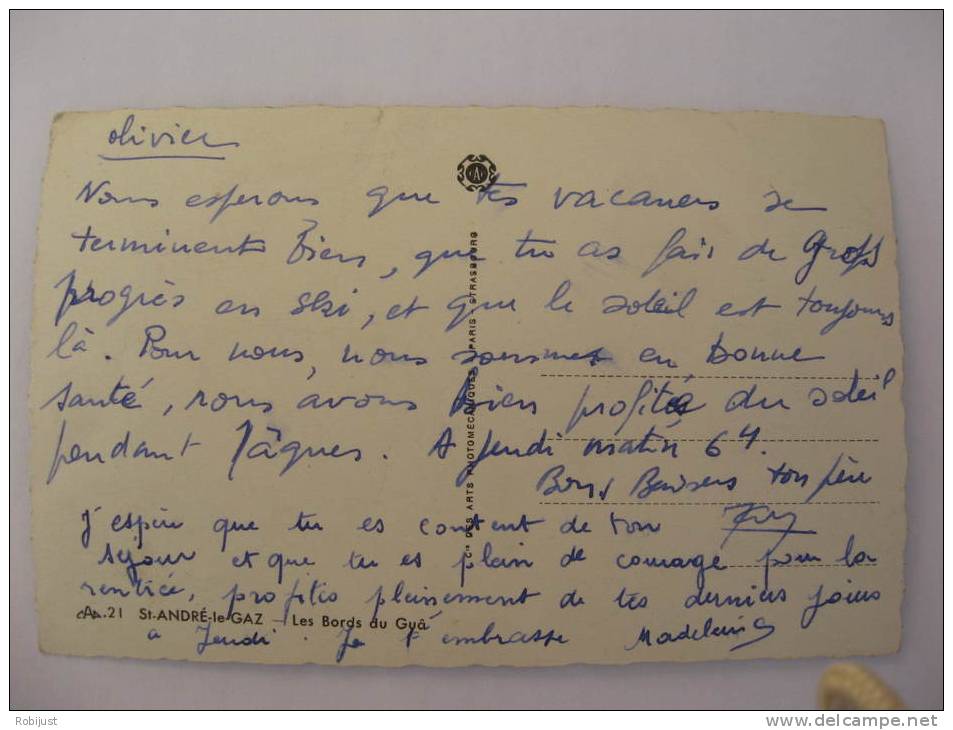 olivier
Nous esperons que tes vacances se
terminent Bien, que tu as fais de Gros
progrès en ski, et que le soleil est toujours
là. Pour nous, nous sommes en bonne
santé, nous avons bien profité du soleil
pendant Pâques. A jeudi matin 6 H.
Bons Baisers ton père
J'espère que tu es content de ton
séjour et que tu es plein de courage pour la
rentrée, profites pleinement de tes derniers jours
a Jeudi. Je t'embrasse Madeleine
A. 21 St-ANDRÉ-le-GAZ - Les Bords du Guâ
Cie DES ARTS PHOTOMÉCANIQUES PARIS - STRASBOURG
A
Robijust
www.delcampe.net